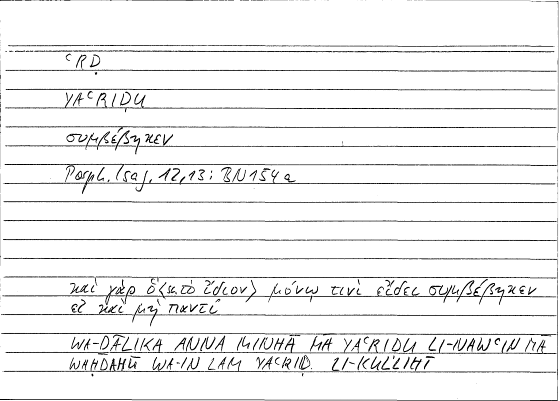 ʿRḌ
YAʿRIḌU
συμβέβηκεν
Porph. Isag. 12,13: BN 154a
καὶ γὰρ ὃ ⟨τὸ ἴδιον⟩ μόνῳ τινὶ εἴδει συμβέβηκεν
εἰ καὶ μὴ παντί
WA-ḎĀLIKA ANNA MINHĀ MĀ YAʿRIḌU LI-NAWʿIN MĀ
WAḤDAHŪ WA-IN LAM YAʿRIḌ LI-KULLIHĪ